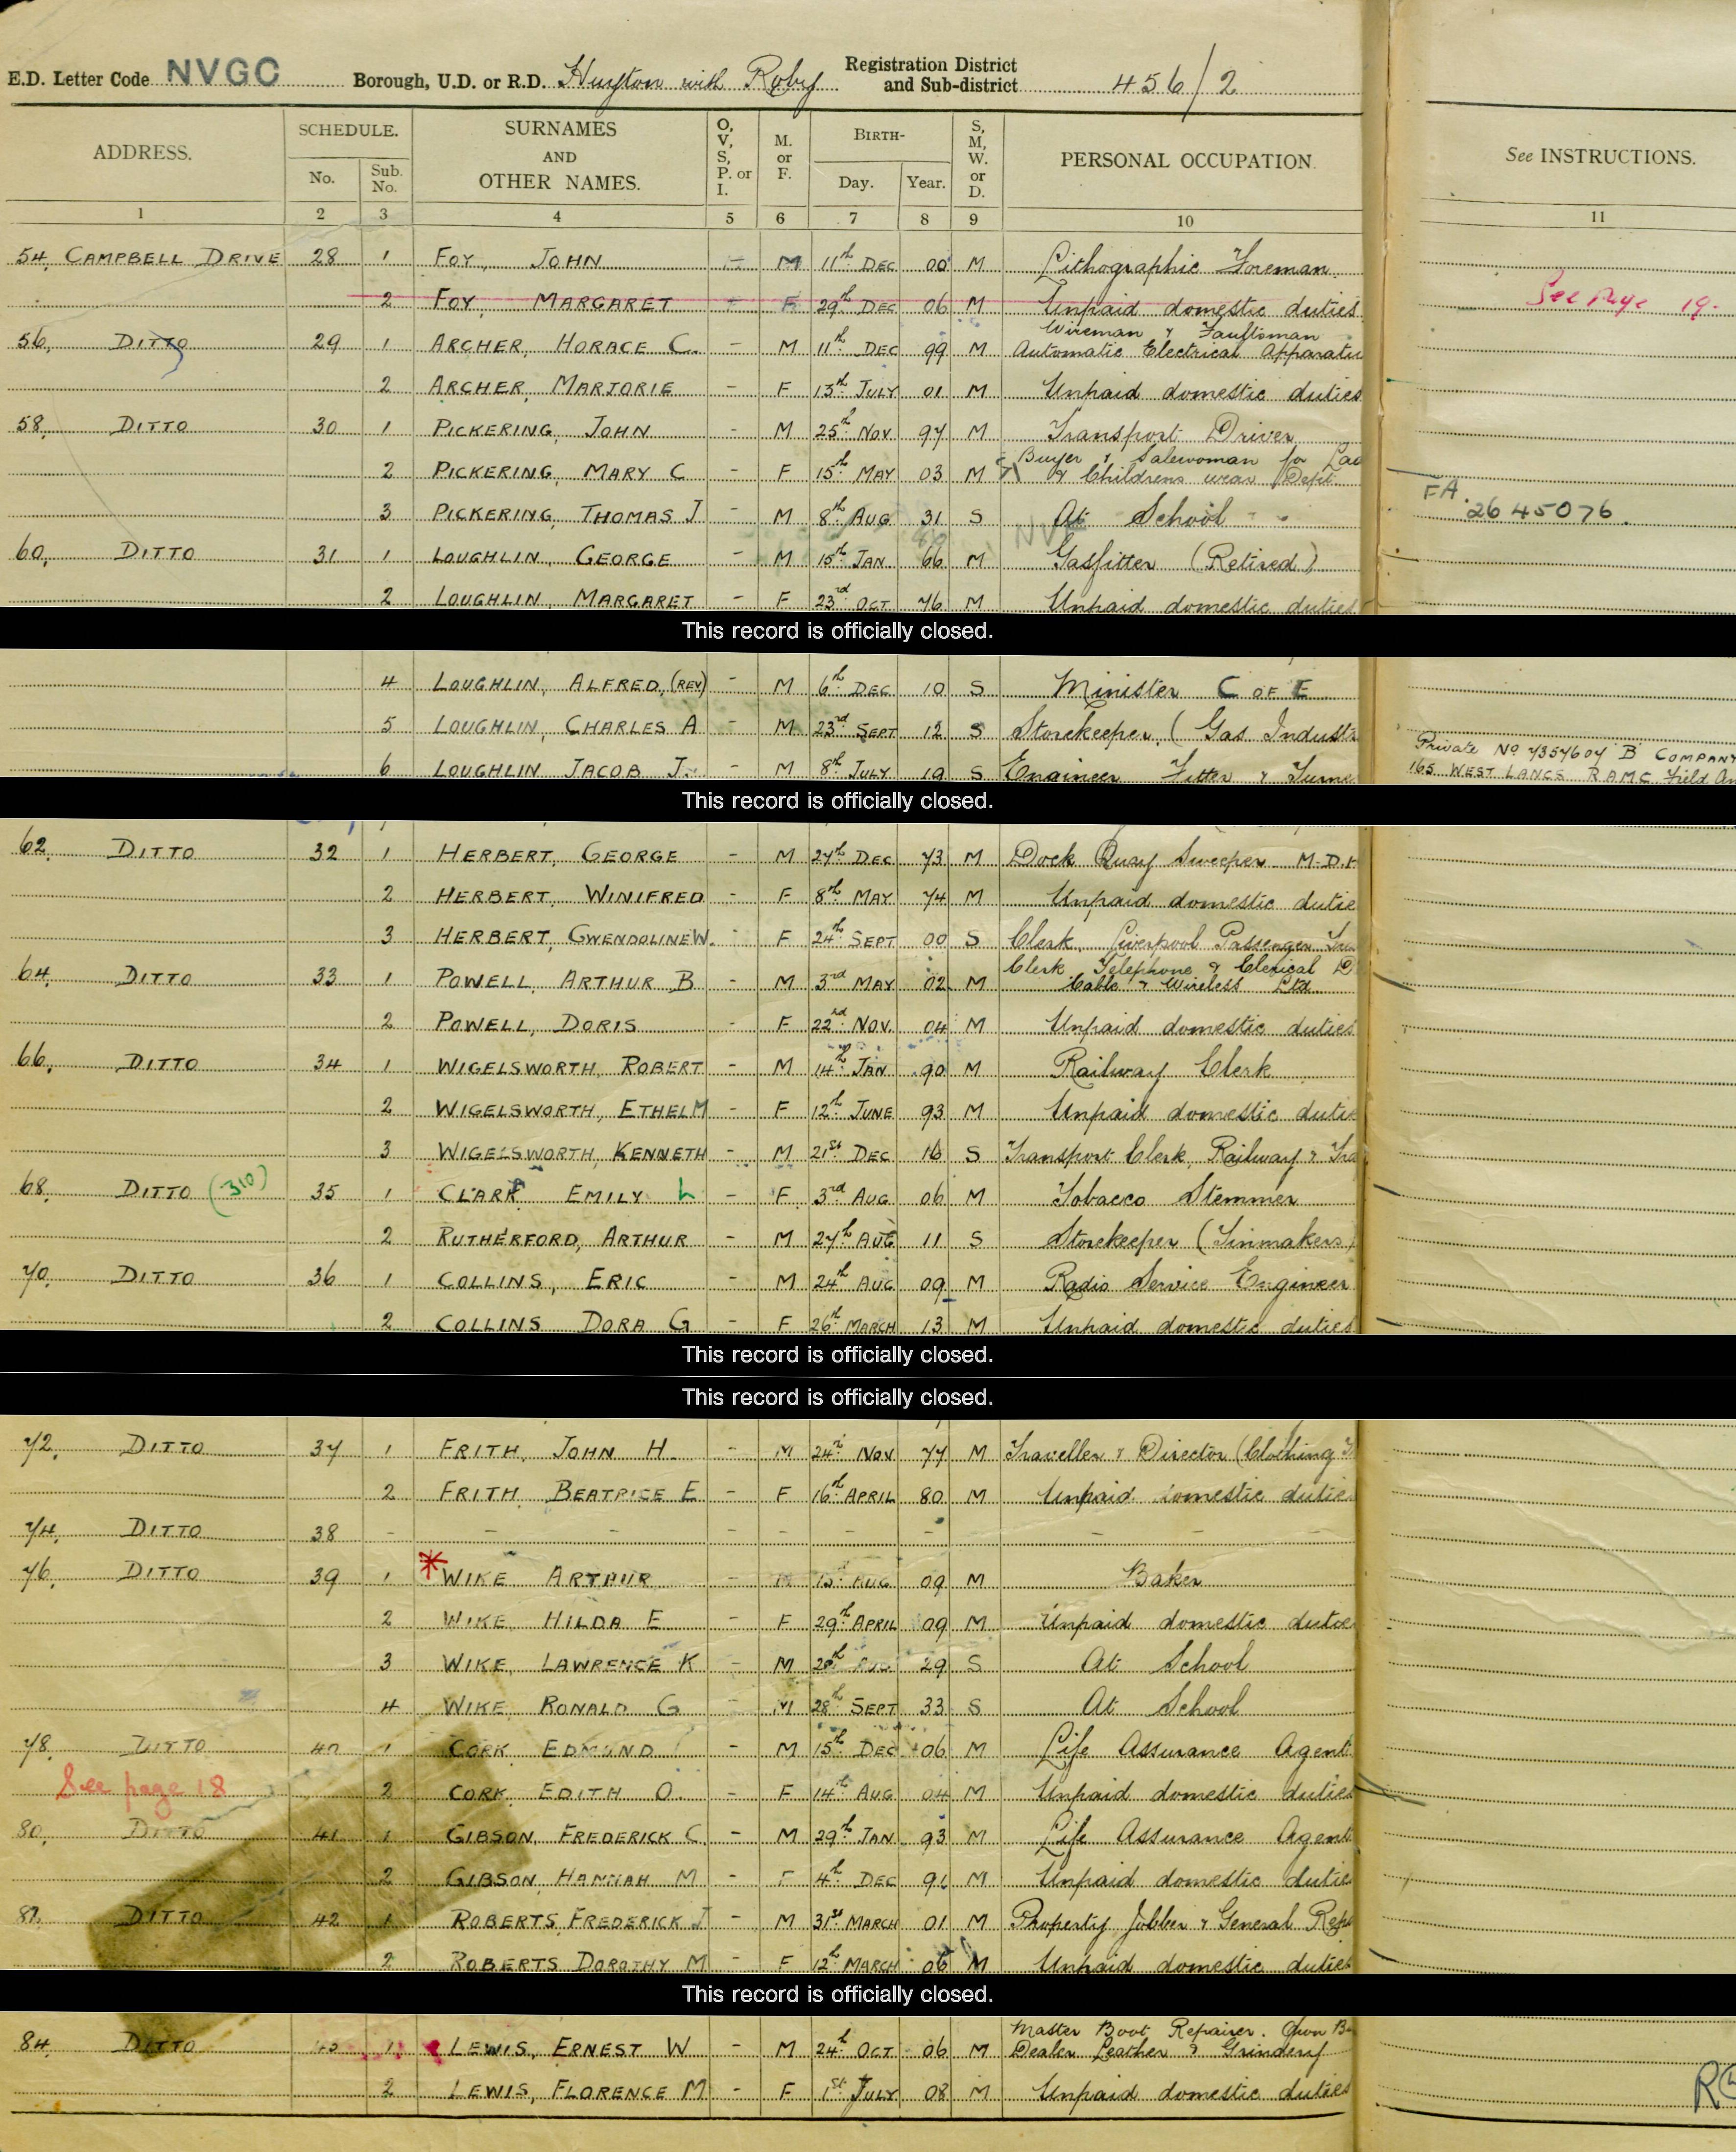 E.D. Letter Code NVGC Borough, U.D. or R.D. Huyton with Roby Registration District and Sub-district 456/2
ADDRESS. SCHEDULE. No. Sub. No. SURNAMES AND OTHER NAMES. O, V, S, P. or I. M. or F. BIRTH- Day. Year. S, M, W. or D. PERSONAL OCCUPATION. See INSTRUCTIONS.
1 2 3 4 5 6 7 8 9 10 11
54, CAMPBELL DRIVE 28 1 FOY, JOHN - M 11th DEC 00 M Lithographic Foreman.
2 FOY, MARGARET - F 29th DEC 06 M Unpaid domestic duties See Page 19.
56, DITTO 29 1 ARCHER, HORACE C. - M 11th DEC 99 M Wireman & Faultsman Automatic Electrical Apparatu
2 ARCHER, MARJORIE - F 13th JULY 01 M Unpaid domestic duties
58, DITTO 30 1 PICKERING, JOHN - M 25th NOV 97 M Transport Driver
2 PICKERING, MARY C - F 15th MAY 03 M Buyer & Saleswoman for Lad & Childrens wear Dept.
3 PICKERING, THOMAS J - M 8th AUG 31 S At School FA. 2645076.
60, DITTO 31 1 LOUGHLIN, GEORGE - M 15th JAN 66 M Gasfitter (Retired)
2 LOUGHLIN, MARGARET - F 23rd OCT 76 M Unpaid domestic duties
This record is officially closed.
4 LOUGHLIN, ALFRED, (REV) - M 6th DEC 10 S Minister C OF E
5 LOUGHLIN, CHARLES A - M 23rd SEPT 12 S Storekeeper. (Gas Industr
Private No 7357607 'B' COMPANY
6 LOUGHLIN JACOB J. - M 8th JULY 19 S Engineer Fitter & Turne 165 WEST LANCS RAMC Field Am
This record is officially closed.
62, DITTO 32 1 HERBERT, GEORGE - M 27th DEC 73 M Dock Quay Sweeper M.D.H
2 HERBERT, WINIFRED - F 8th MAY 74 M Unpaid domestic dutie
3 HERBERT, GWENDOLINE W. - F 24th SEPT 00 S Clerk, Liverpool Passenger Tra
64, DITTO 33 1 POWELL, ARTHUR B - M 3rd MAY 02 M Clerk Telephone & Clerical D Cable & Wireless Ltd
2 POWELL, DORIS - F 22nd NOV. 04 M Unpaid domestic duties
66, DITTO 34 1 WIGELSWORTH, ROBERT - M 14th JAN 90 M Railway Clerk
2 WIGELSWORTH, ETHEL M - F 12th JUNE 93 M Unpaid domestic dutie
3 WIGELSWORTH, KENNETH - M 21st DEC 16 S Transport Clerk, Railway & Tra
68, DITTO (310) 35 1 CLARK EMILY L - F 3rd AUG 06 M Tobacco Stemmer
2 RUTHERFORD, ARTHUR - M 27th AUG 11 S Storekeeper (Tinmakers)
70, DITTO 36 1 COLLINS, ERIC - M 24th AUG 09 M Radio Service Engineer
2 COLLINS DORA G - F 26th MARCH 13 M Unpaid domestic duties
This record is officially closed.
This record is officially closed.
72, DITTO 37 1 FRITH, JOHN H. - M 24th NOV 77 M Traveller & Director (Clothing
2 FRITH BEATRICE E - F 16th APRIL 80 M Unpaid domestic dutie
74, DITTO 38 - - - - - - - - - - -
76, DITTO 39 1 *WIKE ARTHUR - M 13th AUG 09 M Baker
2 WIKE, HILDA E - F 29th APRIL 09 M Unpaid domestic dutie
3 WIKE, LAWRENCE K - M 28th AUG 29 S At School
4 WIKE, RONALD G - M 28th SEPT 33 S At School
78, DITTO 40 1 CORK, EDMUND - M 15th DEC 06 M Life Assurance Agent
See page 18
2 CORK, EDITH O. - F 14th AUG 04 M Unpaid domestic duties
80, DITTO 41 1 GIBSON, FREDERICK C. - M 29th JAN 93 M Life Assurance Agent
2 GIBSON, HANNAH M - F 4th DEC 91 M Unpaid domestic dutie
DITTO 42 1 ROBERTS, FREDERICK J - M 31st MARCH 01 M Property Jobber & General Repa
2 ROBERTS DOROTHY M - F 12th MARCH 06 M Unpaid domestic duties
This record is officially closed.
84, DITTO 43 1 LEWIS, ERNEST W - M 24th OCT 06 M Master Boot Repairer. Own B Dealer Leather & Grindery
2 LEWIS, FLORENCE M - F 1st JULY 08 M Unpaid domestic duties